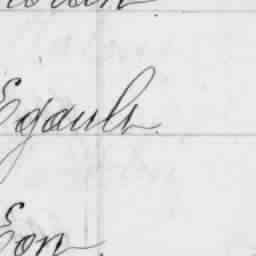 Egault.
Eon.